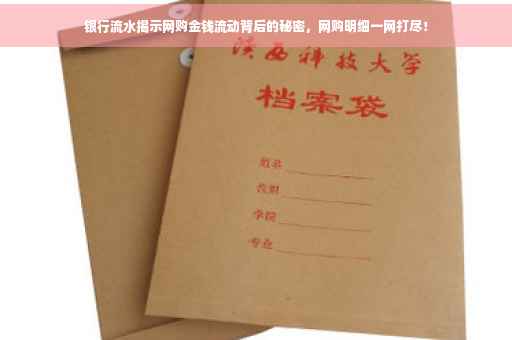 银行流水揭示网购金钱流动背后的秘密，网购明细一网打尽！
陕西科技大学
档案袋
姓名
学院
专业